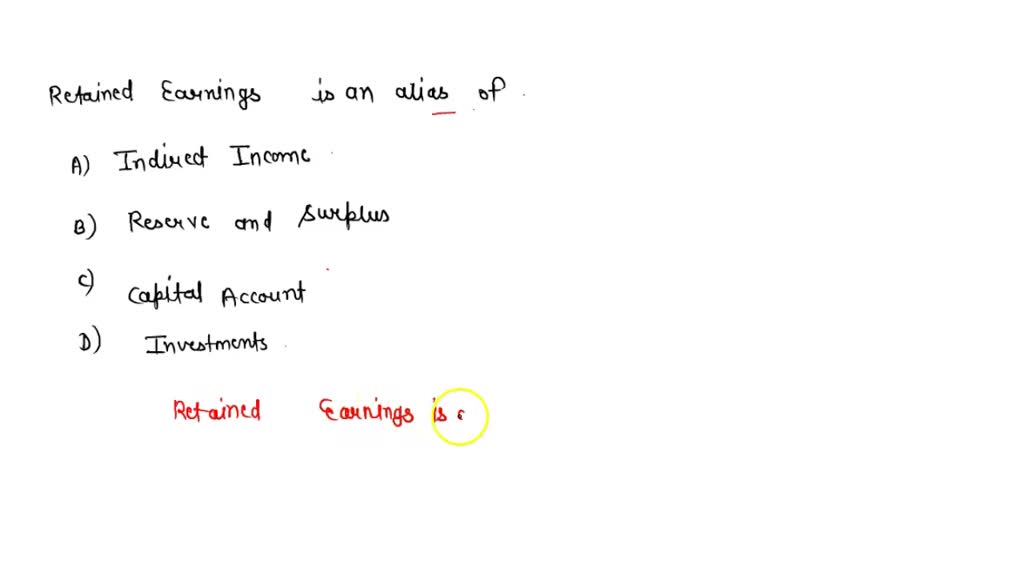 Retained Earnings is an alias of.
A) Indirect Income
B) Reserve and Surplus
C) Capital Account
D) Investments
Retained Earnings is